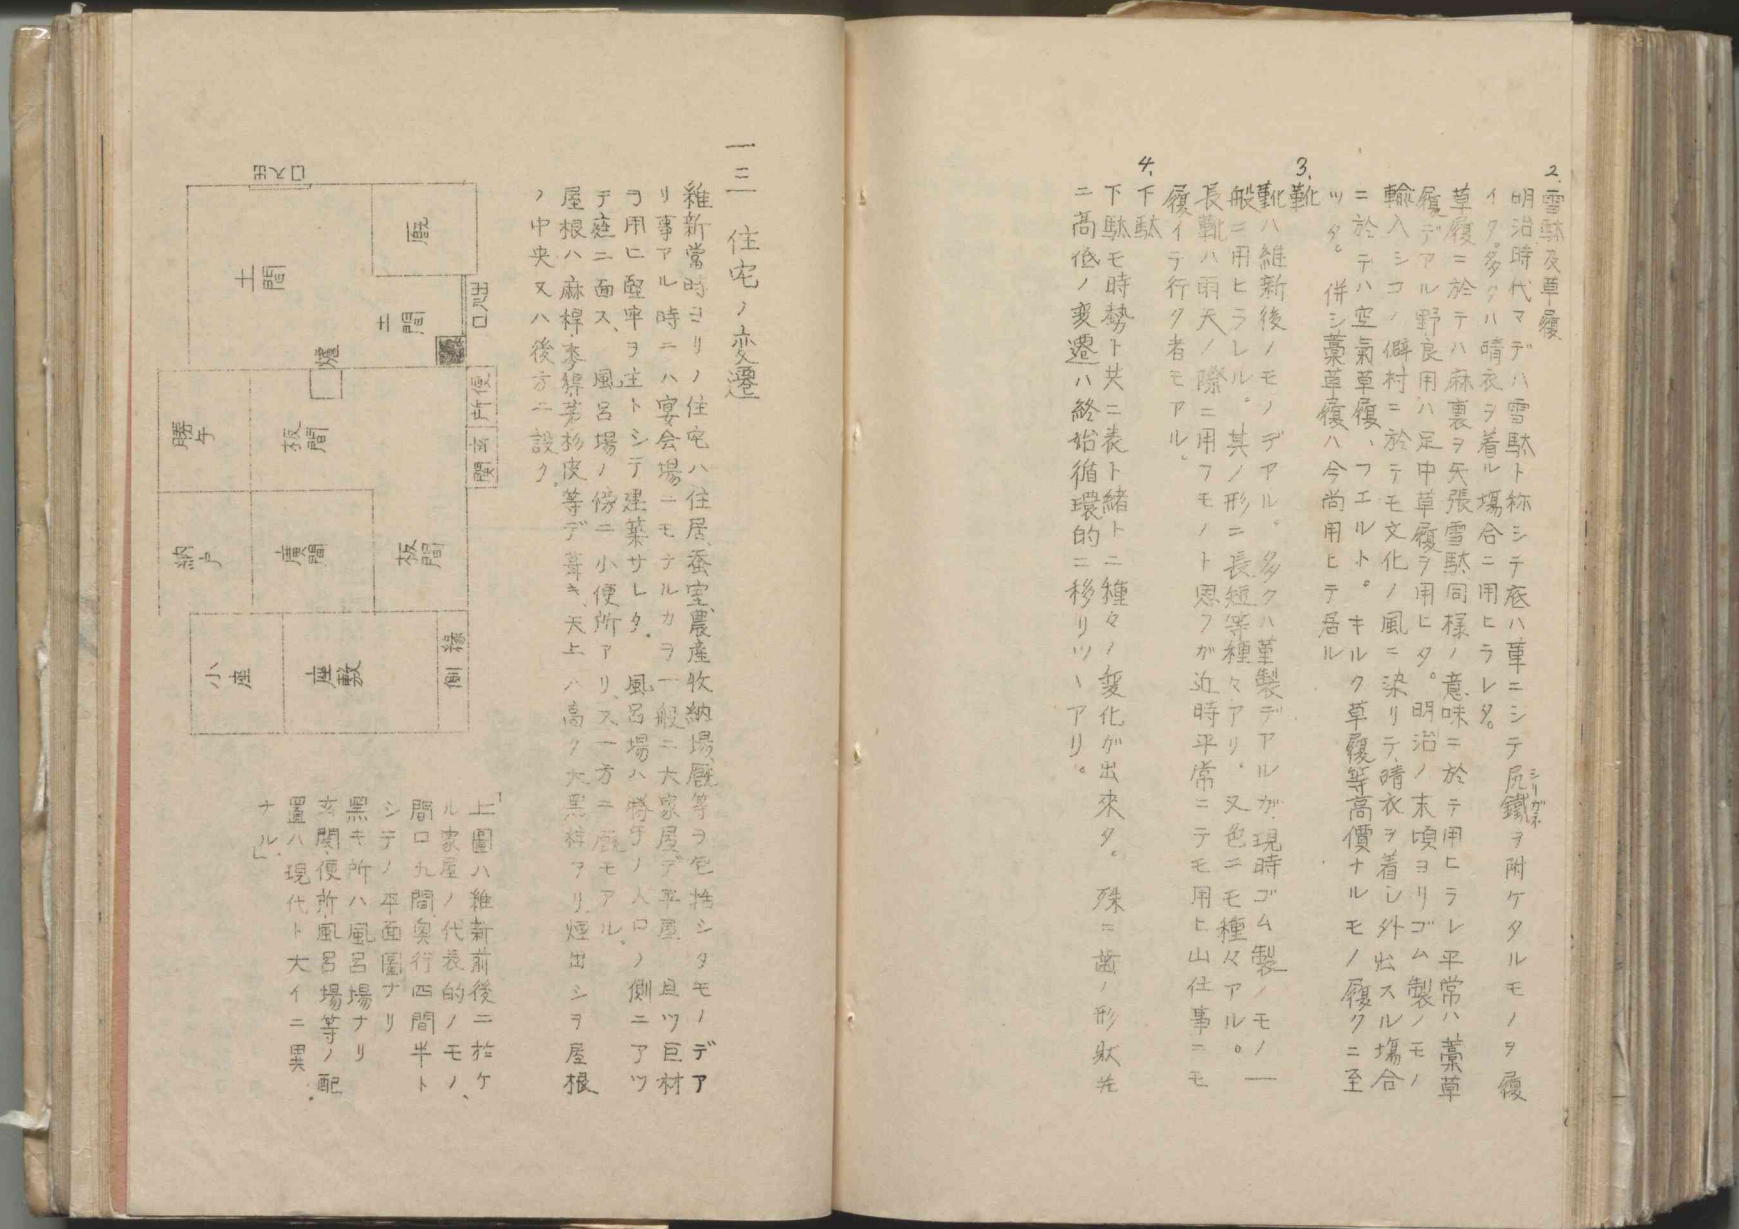 2. 雪駄及草履
明治時代マデハ雪駄ト称シテ底ハ革ニシテ尻鐵ヲ附ケタルモノヲ履
シリガネ
イタ。多クハ晴衣ヲ着ル場合ニ用ヒラレタ。
草履ニ於テハ麻裏ヲ矢張雪駄同様ノ意味ニ於テ用ヒラレ平常ハ藁草
履デアル野良用ハ足中草履ヲ用ヒタ。明治ノ末頃ヨリゴム製ノモノ
輸入シコノ僻村ニ於テモ文化ノ風ニ染リテ、晴衣ヲ着シ外出スル場合
ニ於テハ空氣草履、フエルト。キルク草履等高價ナルモノ履クニ至
ツタ。併シ藁草履ハ今尚用ヒテ居ル
3. 靴
靴ハ維新後ノモノデアル。多クハ革製デアルガ現時ゴム製ノモノ一
般ニ用ヒラレル。其ノ形ニ長短等種々アリ。又色ニモ種々アル。
長靴ハ雨天ノ際ニ用フモノト思フガ近時平常ニテモ用ヒ山仕事ニモ
履イテ行ク者モアル。
4. 下駄
下駄モ時勢ト共ニ表ト緒トニ種々ノ変化ガ出來タ。殊ニ歯ノ形狀並
ニ高低ノ変遷ハ終始循環的ニ移リツヽアリ。
一三 住宅ノ変遷
維新當時ヨリノ住宅ハ住居、蚕室、農産收納場、厩等ヲ包括シタモノデア
リ事アル時ニハ宴会場ニモナルカラ一般ニ大家屋デ平屋、且ツ巨材
ヲ用ヒ堅牢ヲ主トシテ建築サレタ。風呂場ハ勝手ノ入口ノ側ニアツ
テ庭ニ面ス、風呂場ノ傍ニ小便所アリ、又一方ニ厩モアル。
屋根ハ麻桿、麥稈、茅、杉皮等デ葺キ、天上ハ高ク大黒柱アリ、煙出シヲ屋根
ノ中央又ハ後方ニ設ク。
出入口
厩
土間
土間
出入口
爐
便所
玄関
勝手
板間
納戸
廣間
板間
小座
座敷
縁側
「上圖ハ維新前後ニ於ケ
ル家屋ノ代表的ノモノ、
間口九間、奥行四間半ト
シテノ平面圖ナリ
黒キ所ハ風呂場ナリ
玄関、便所、風呂場等ノ配
置ハ現代ト大イニ異
ナル」